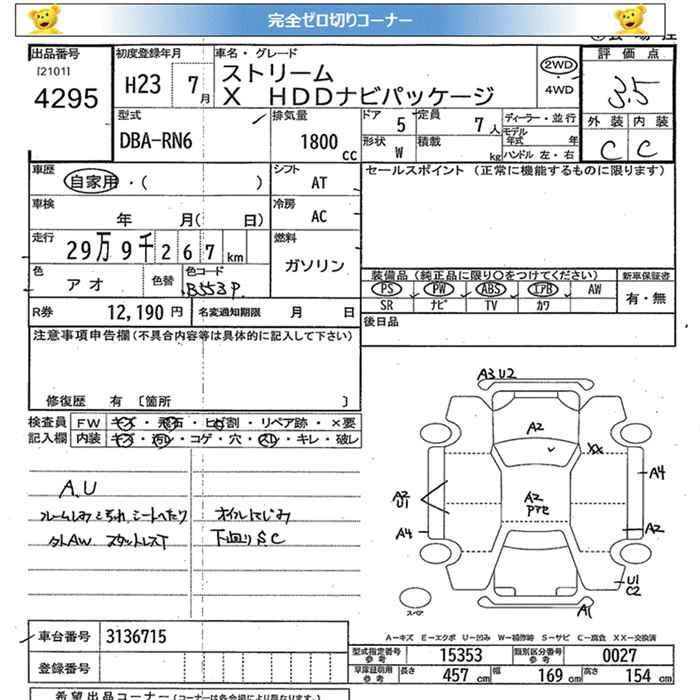 完全ゼロ切りコーナー
出品番号 初度登録年月 車名・グレード 評価点
[2101] H23 7月 ストリーム 2WD
4295 X HDDナビパッケージ ・4WD 3.5
型式 排気量 ドア 5 定員 7人 ディーラー・並行 外装 内装
DBA-RN6 1800cc 形状 W 積載 kg モデル年式 年 C C
ハンドル 左・右
車歴 シフト セールスポイント (正常に機能するものに限ります)
自家用・( ) AT
車検 冷房
年 月( 日) AC
走行 29万9千267km 燃料
ガソリン
色 アオ 色替 色コード B553P 装備品(純正品に限り○をつけてください) 新車保証書
PS PW ABS エアB AW 有・無
SR ナビ TV カワ
R券 12,190円 名変通知期限 月 日 後日品
注意事項申告欄(不具合内容等は具体的に記入して下さい)
修復歴 有 〔箇所 〕
検査員 FW キズ・飛石・ヒビ割・リペア跡・×要
記入欄 内装 キズ・汚レ・コゲ・穴・スレ・キレ・破レ
A3 U2
A2
XX
A.U A2 U1 A2 A4
シートへたり オイルにじみ Pアセ
外AW. スタットレスT 下回りSC A4 A2
U1
C2
スペア A1
A－キズ E－エクボ U－凹み W－補修跡 S－サビ C－腐食 XX－交換済
車台番号 3136715
型式指定番号 参考 15353 類別区分番号 参考 0027
登録番号 車庫証明用 参考 長さ 457cm 幅 169cm 高さ 154cm
希望出品コーナー